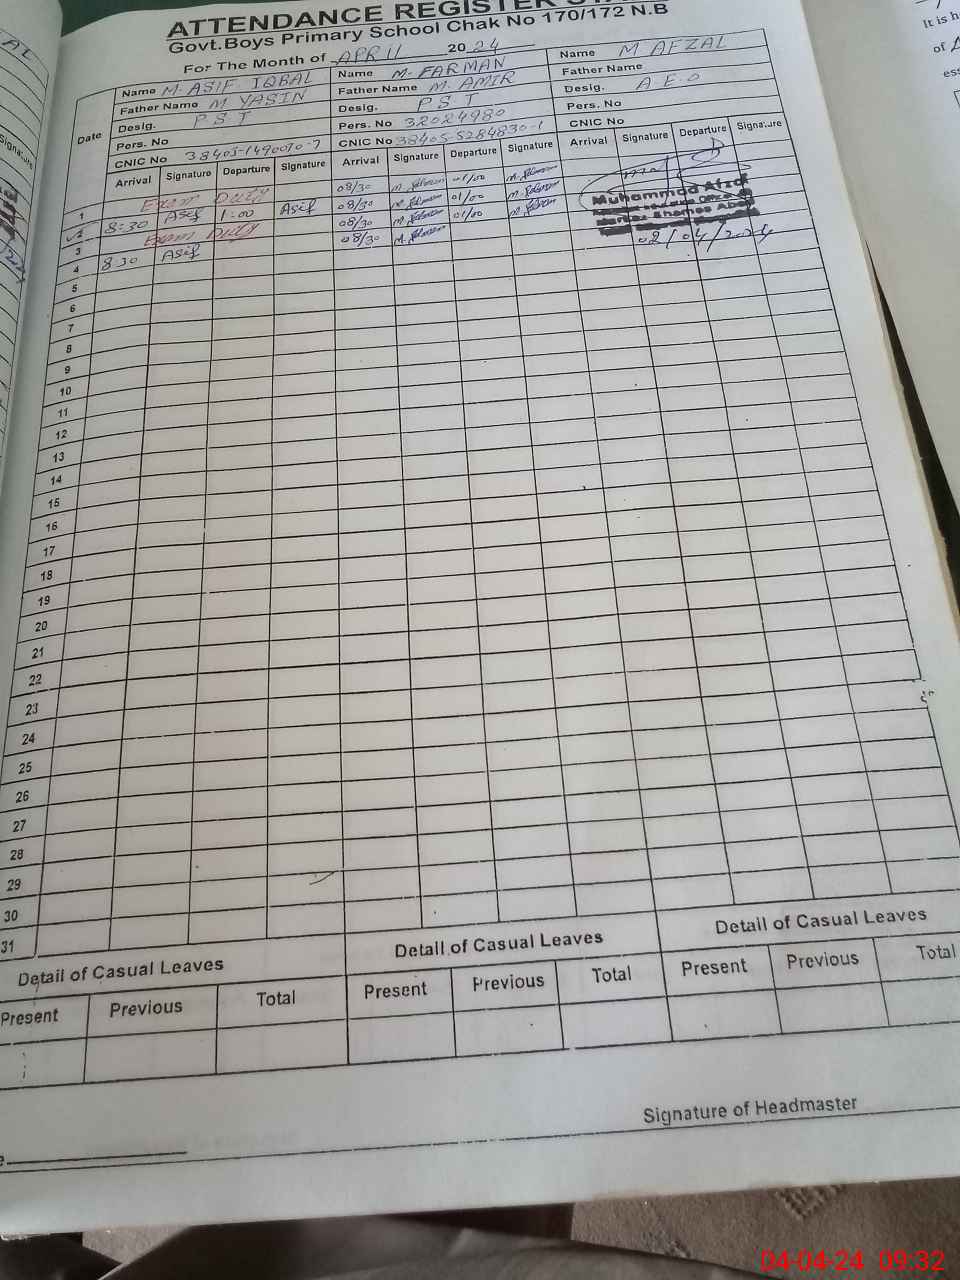 ATTENDANCE REGISTER
Govt.Boys Primary School Chak No 170/172 N.B
For The Month of APRIL 2024
Date
Name M. ASIF IQBAL
Father Name M YASIN
Desig. PST
Pers. No
CNIC No
Name M. FARMAN
Father Name M. AMIR
Desig. PST
Pers. No 32024980
CNIC No 38405-5284830-1
Name M AFZAL
Father Name
Desig. A E O
Pers. No
CNIC No
Arrival Signature Departure Signature Arrival Signature Departure Signature Arrival Signature Departure Signature
1 Exam Duty 08/30 01/00
2 8:30 Asif 1:00 Asif 08/30 01/00
3 Exam Duty 08/30 01/00
4 8:30 Asif 08/30
Muhammad Afzal
02/04/2024
5
6
7
8
9
10
11
12
13
14
15
16
17
18
19
20
21
22
23
24
25
26
27
28
29
30
31
Detail of Casual Leaves Detail of Casual Leaves Detail of Casual Leaves
Present Previous Total Present Previous Total Present Previous Total
Signature of Headmaster
It is h
of
ess
04-04-24 09:32